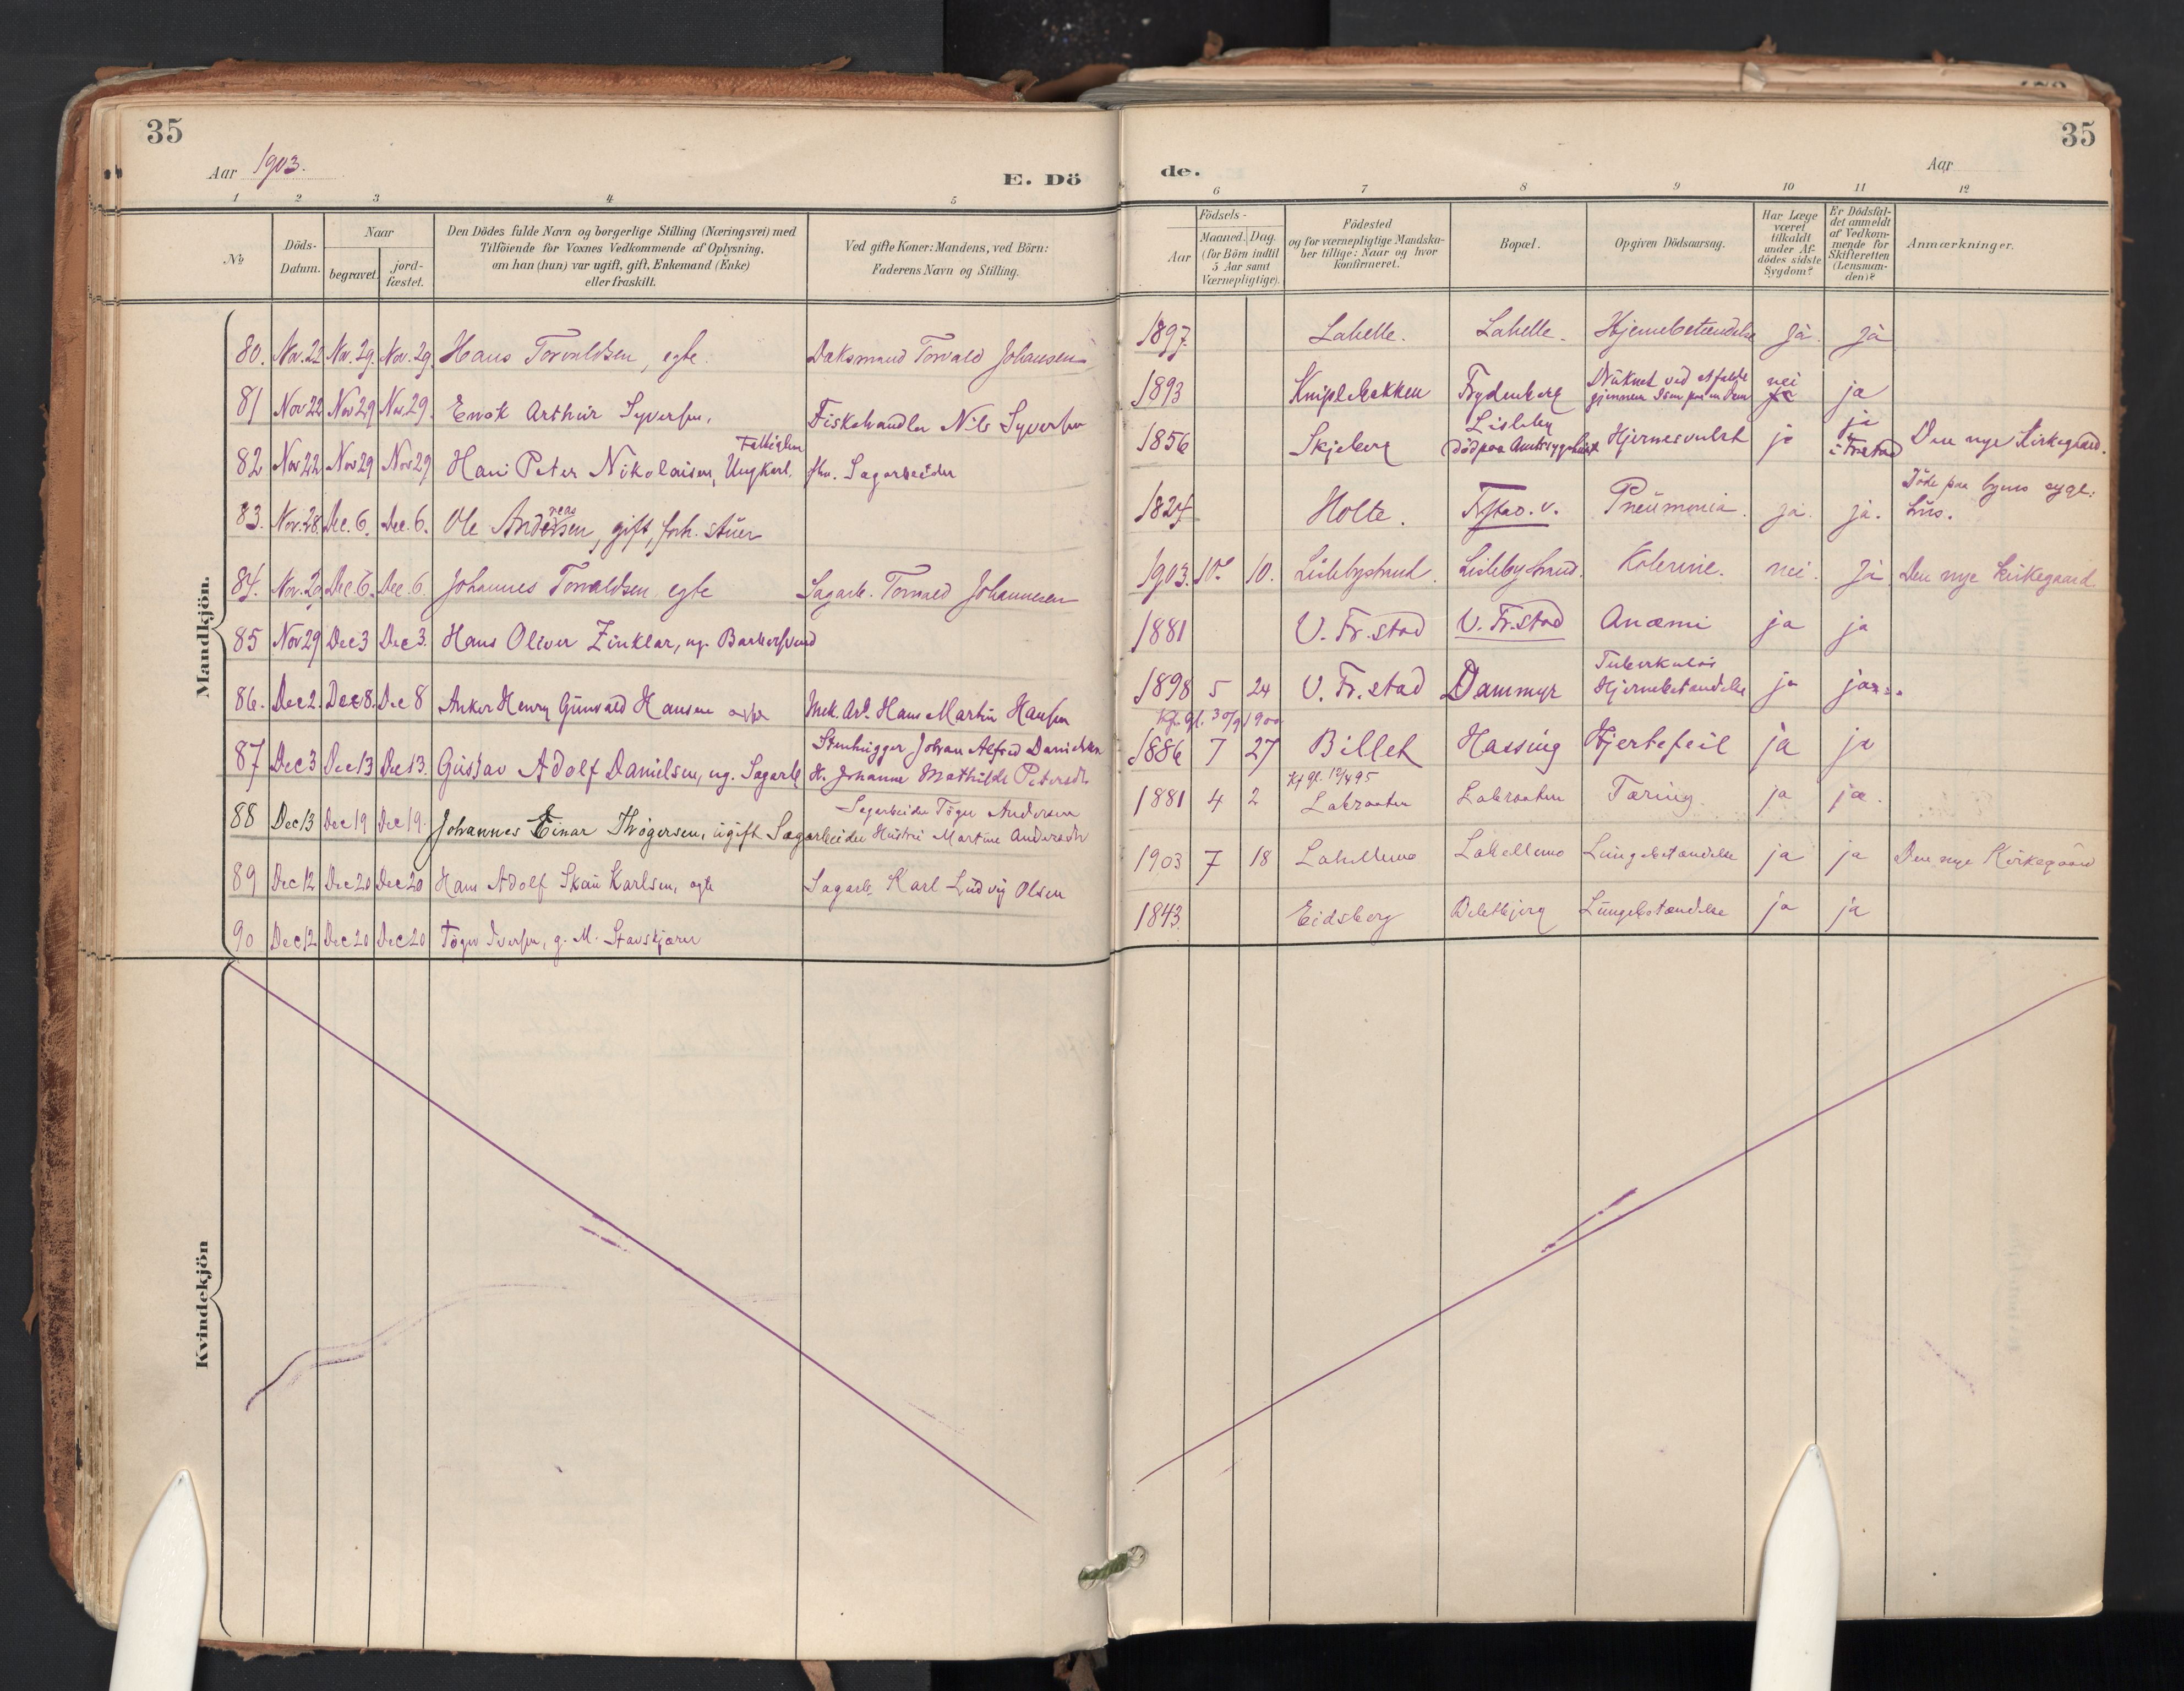 35
35
Aar 1903.
E. Dö
de.
Aar
1 2 3 4 5 6 7 8 9 10 11 12
No
Döds-
Datum.
Naar
begravet.
jord-
fæstet.
Den Dödes fulde Navn og borgerlige Stilling (Næringsvei) med
Tilföiende for Voxnes Vedkommende af Oplysning,
om han (hun) var ugift, gift, Enkemand (Enke)
eller fraskilt.
Ved gifte Koner: Mandens, ved Börn:
Faderens Navn og Stilling.
Födsels-
Aar
Maaned. Dag.
(for Börn indtil
5 Aar samt
Værnepligtige).
Födested
og for værnepligtige Mandska-
ber tillige: Naar og hvor
konfirmeret.
Bopæl.
Opgiven Dödsaarsag.
Har Læge
været
tilkaldt
under Af-
dödes sidste
Sygdom?
Er Dödsfal-
det anmeldt
af Vedkom-
mende for
Skifteretten
(Lensman-
den)?
Anmærkninger.
Mandkjön.
80. Nov. 22 Nov. 29. Nov. 29. Hans Torvaldsen, egte. Torvald Johansen 1897. Lahelle. Lahelle. Hjernebetændelse Ja. Ja
81 Nov 22 Nov 29 Nov. 29. Enok Arthur Syversen, Fiskehandler Nils Syversen 1893 Kniplebakken Frydenberg Druknet ved at falde
gjennem Isen paa nei ja
82 Nov 22 Nov 29 Nov 29 Hans Peter Nikolaisen, Ungkarl. Fattiglem
fhv. Sagarbeider 1856 Skjeberg Lisleby
död paa Amtssygehuset Hjernesvulst ja ja
i Fr.stad Den nye Kirkegaard.
83. Nov. 28. Dec. 6. Dec. 6. Ole Andersen, gift, forh. Stuer
reas
1824 Holte. Frstad. v. Pneumonia. ja. ja. Döde paa byens sygehus.
84. Nov. 29 Dec. 6. Dec. 6. Johannes Torvaldsen egte Sagarb. Torvald Johannesen 1903. 10. 10. Lislebystrand. Lislebystrand. Kolerine. nei. Ja Den nye kirkegaard
85 Nov 29 Dec 3 Dec 3. Hans Oliver Zinklar, ug. Barbersvend 1881 V. Fr.stad V. Fr.stad Anæmi ja ja
86. Dec 2. Dec 8. Dec 8 Anker Henry Gunvald Hansen Mek. Arb. Hans Martin Hansen 1898 5 24 V. Fr.stad Dammyr Tuberkuløs
Hjernebetændelse ja ja
87 Dec 3 Dec 13 Dec 13. Gustav Adolf Danielsen, ug. Sagarb Stenhugger Johan Alfred Danielsen
H. Johanne Mathilde Petersdr. Kf. gl. 30/9 1900
1886 7 27 Billet Hassing Hjertefeil ja ja
88 Dec 13 Dec 19 Dec 19. Johannes Einar Thögersen, ugift Sagarbeider Sagarbeider Töger Andersen
Hustru Martine Andersdr 1881 4 2 Kf gl.
Labraaten Labraaten Tæring. ja ja.
89 Dec 12 Dec 20 Dec 20 Hans Adolf Skau Karlsen, egte Sagarb. Karl Ludvig Olsen 1903 7 18 Lahellemo Lahellemo Lungebetændelse ja ja Den nye Kirkegaard
90 Dec 12 Dec 20 Dec 20 Töger Iversen, g. M. Stavskjærer 1843. Eidsberg Lungebetændelse ja ja
Kvindekjön